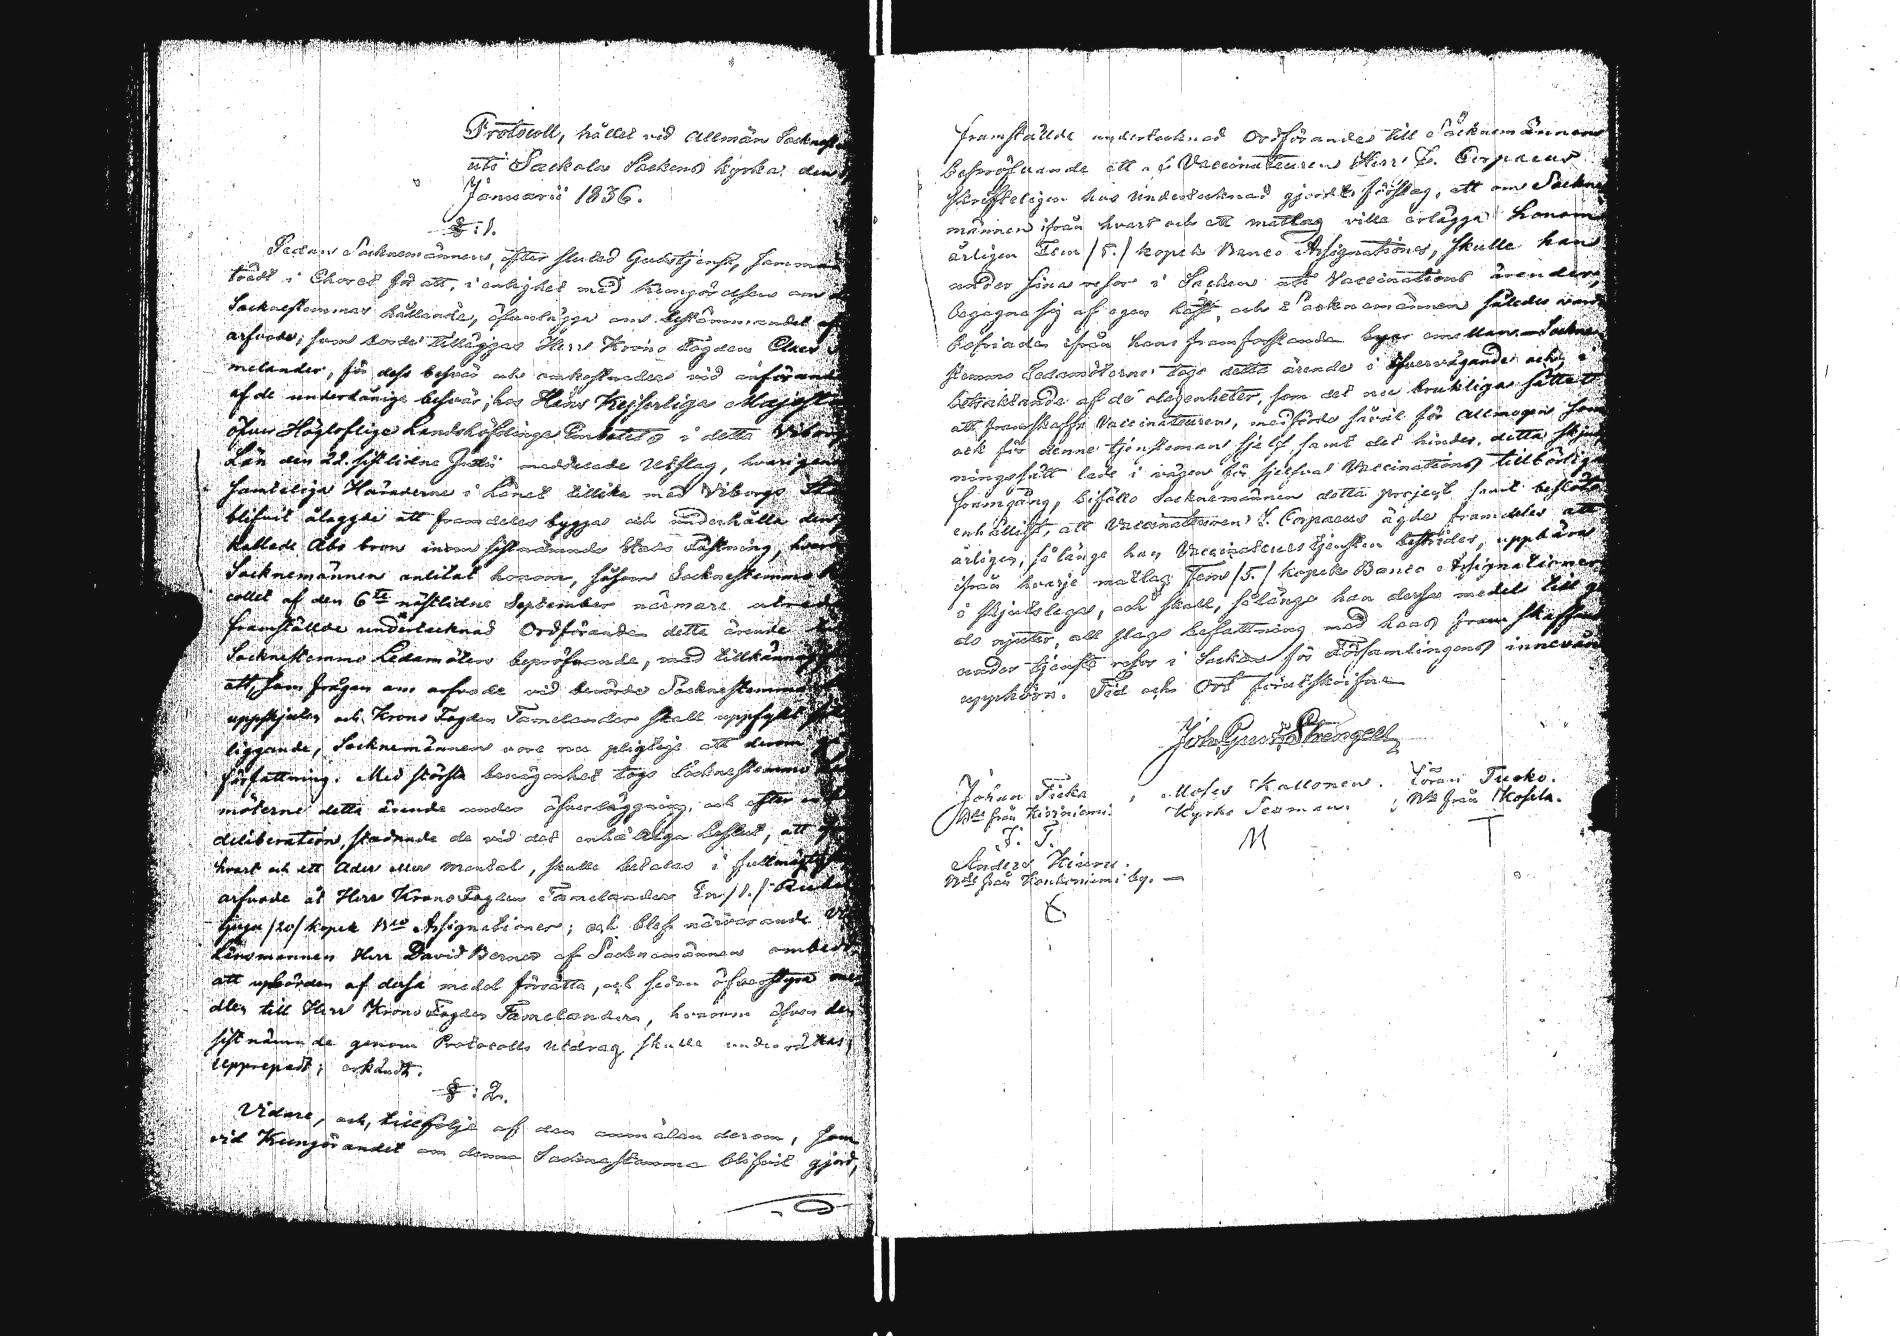 Protocoll, hållet vid Allmän Sockneste
uti Sackola Sockens kyrka den
Januarii 1836.
§:1.
Sedan Socknemännen, efter slutad Gudstjenst, samman
trädt i Choret för att, i enlighet med kungörelsen om de
Socknestemmas hållande, öfverlägga om bestämmandet af
arfvode, som borde tilläggas Herr Krono Fogden
melander, för dess besvär och omkostnader vid anförande
af de underdånige besvär, hos Hans Kejserliga Majest
öfver Högloflige Landshöfdinge Embetets i detta Viborgs
Län den 22. sistlidne Julii meddelade Utslag, hvarigenom
samtelige Häraderne i Länet tillika med Viborgs
blifvit ålaggde att framdeles bygga och underhålla den
kallade Åbo bron inom sistnämnde Stads Fästning, hvar
Socknemännen anlitat honom, såsom Socknestemmo
collet af den 6te nästlidne September närmare utreder
framställde undertecknad Ordförande detta ärende
Socknestemmo Ledamöters bepröfvande, med tillkännag
att, som frågan om arfvode vid berörde Socknestemma
uppskjuten och Krono Fogden Tamelanders skall uppfyld
liggande, Socknemännen vore nu pligtige att derom
författning. Med största benägenhet togo Socknestemmo
möterne detta ärende under öfverläggning, och efter
deliberation, stadnade de vid det enhälliga beslut, att af
hvart och ett Ader eller mantal, skulle betalas i fullmägtig
arfvode åt Herr Krono Fogden Tamelander En /1./ Rubel
tjugu /20/ kopek Bco Assignationer; och blef närvarande
Länsmannen Herr David Berner af Socknemännen ombedd
att upbörden af dessa medel förrätta, och sedan öfverstyra me
dlen till Herr Krono Fogden Tamelander, hvarom äfven den
sistnämnde genom Protocolls Utdrag skulle underrättas;
Upprepadt; erkändt.
§:2.
Vidare, och, tillfölje af den anmälan derom, som
vid Kungörandet om denna Socknestemma blifvit gjord,
framställde undertecknad Ordförandes till Socknemännens
bepröfvande ett af Vaccinateuren Herr J. Corpaeus
skrifteligen hos Undertecknad gjordt förslag, att om Sockne
männen ifrån hvart och ett matlag ville erlägga honom
årligen Fem /5./ kopek Banco Assignationer, skulle han
under sina resor i Socken uti Vaccinations ärender,
begagna sig af egen häst, och Socknemännen således
befriades ifrån hans framforslande byar emellan. Sockne
stemmo Ledamöterne togo detta ärende i öfvervägande och, i
betraktande af de olägenheter, som det nu brukliga sättet
att framskaffa Vaccinateuren, medförde såväl för Allmogen som
ock för denne tjensteman sjelf, samt det hinder, detta skjuts
ningssätt lade i vägen för sjelfva Vaccinations tillbörliga
framgång, biföllo Socknemännen detta project samt beslöto
enhälligt, att Vaccinateuren J. Corpaeus ägde framdeles att
årligen, så länge han Vaccinateurs tjensten bestrider, uppbära
ifrån hvarje matlag Fem /5./ kopek Banco Assignationer
i skjutslega, och skall, så länge han dessa medel till go
do njuter, all slags befattning med hans framskaffan
under tjenste resor i Socken för Församlingens innevån
upphöra. Tid och Ort förutskrifne
Joh. Gust. Strengell
Johan Ticka
Nde från Kiviniemi.
J. T.
Moses Kallonen.
Kyrko Sexman.
M
Göran Tusko.
Nde från Kosela.
T
Anders Kiuru.
Nde från Haukeniemi by. —